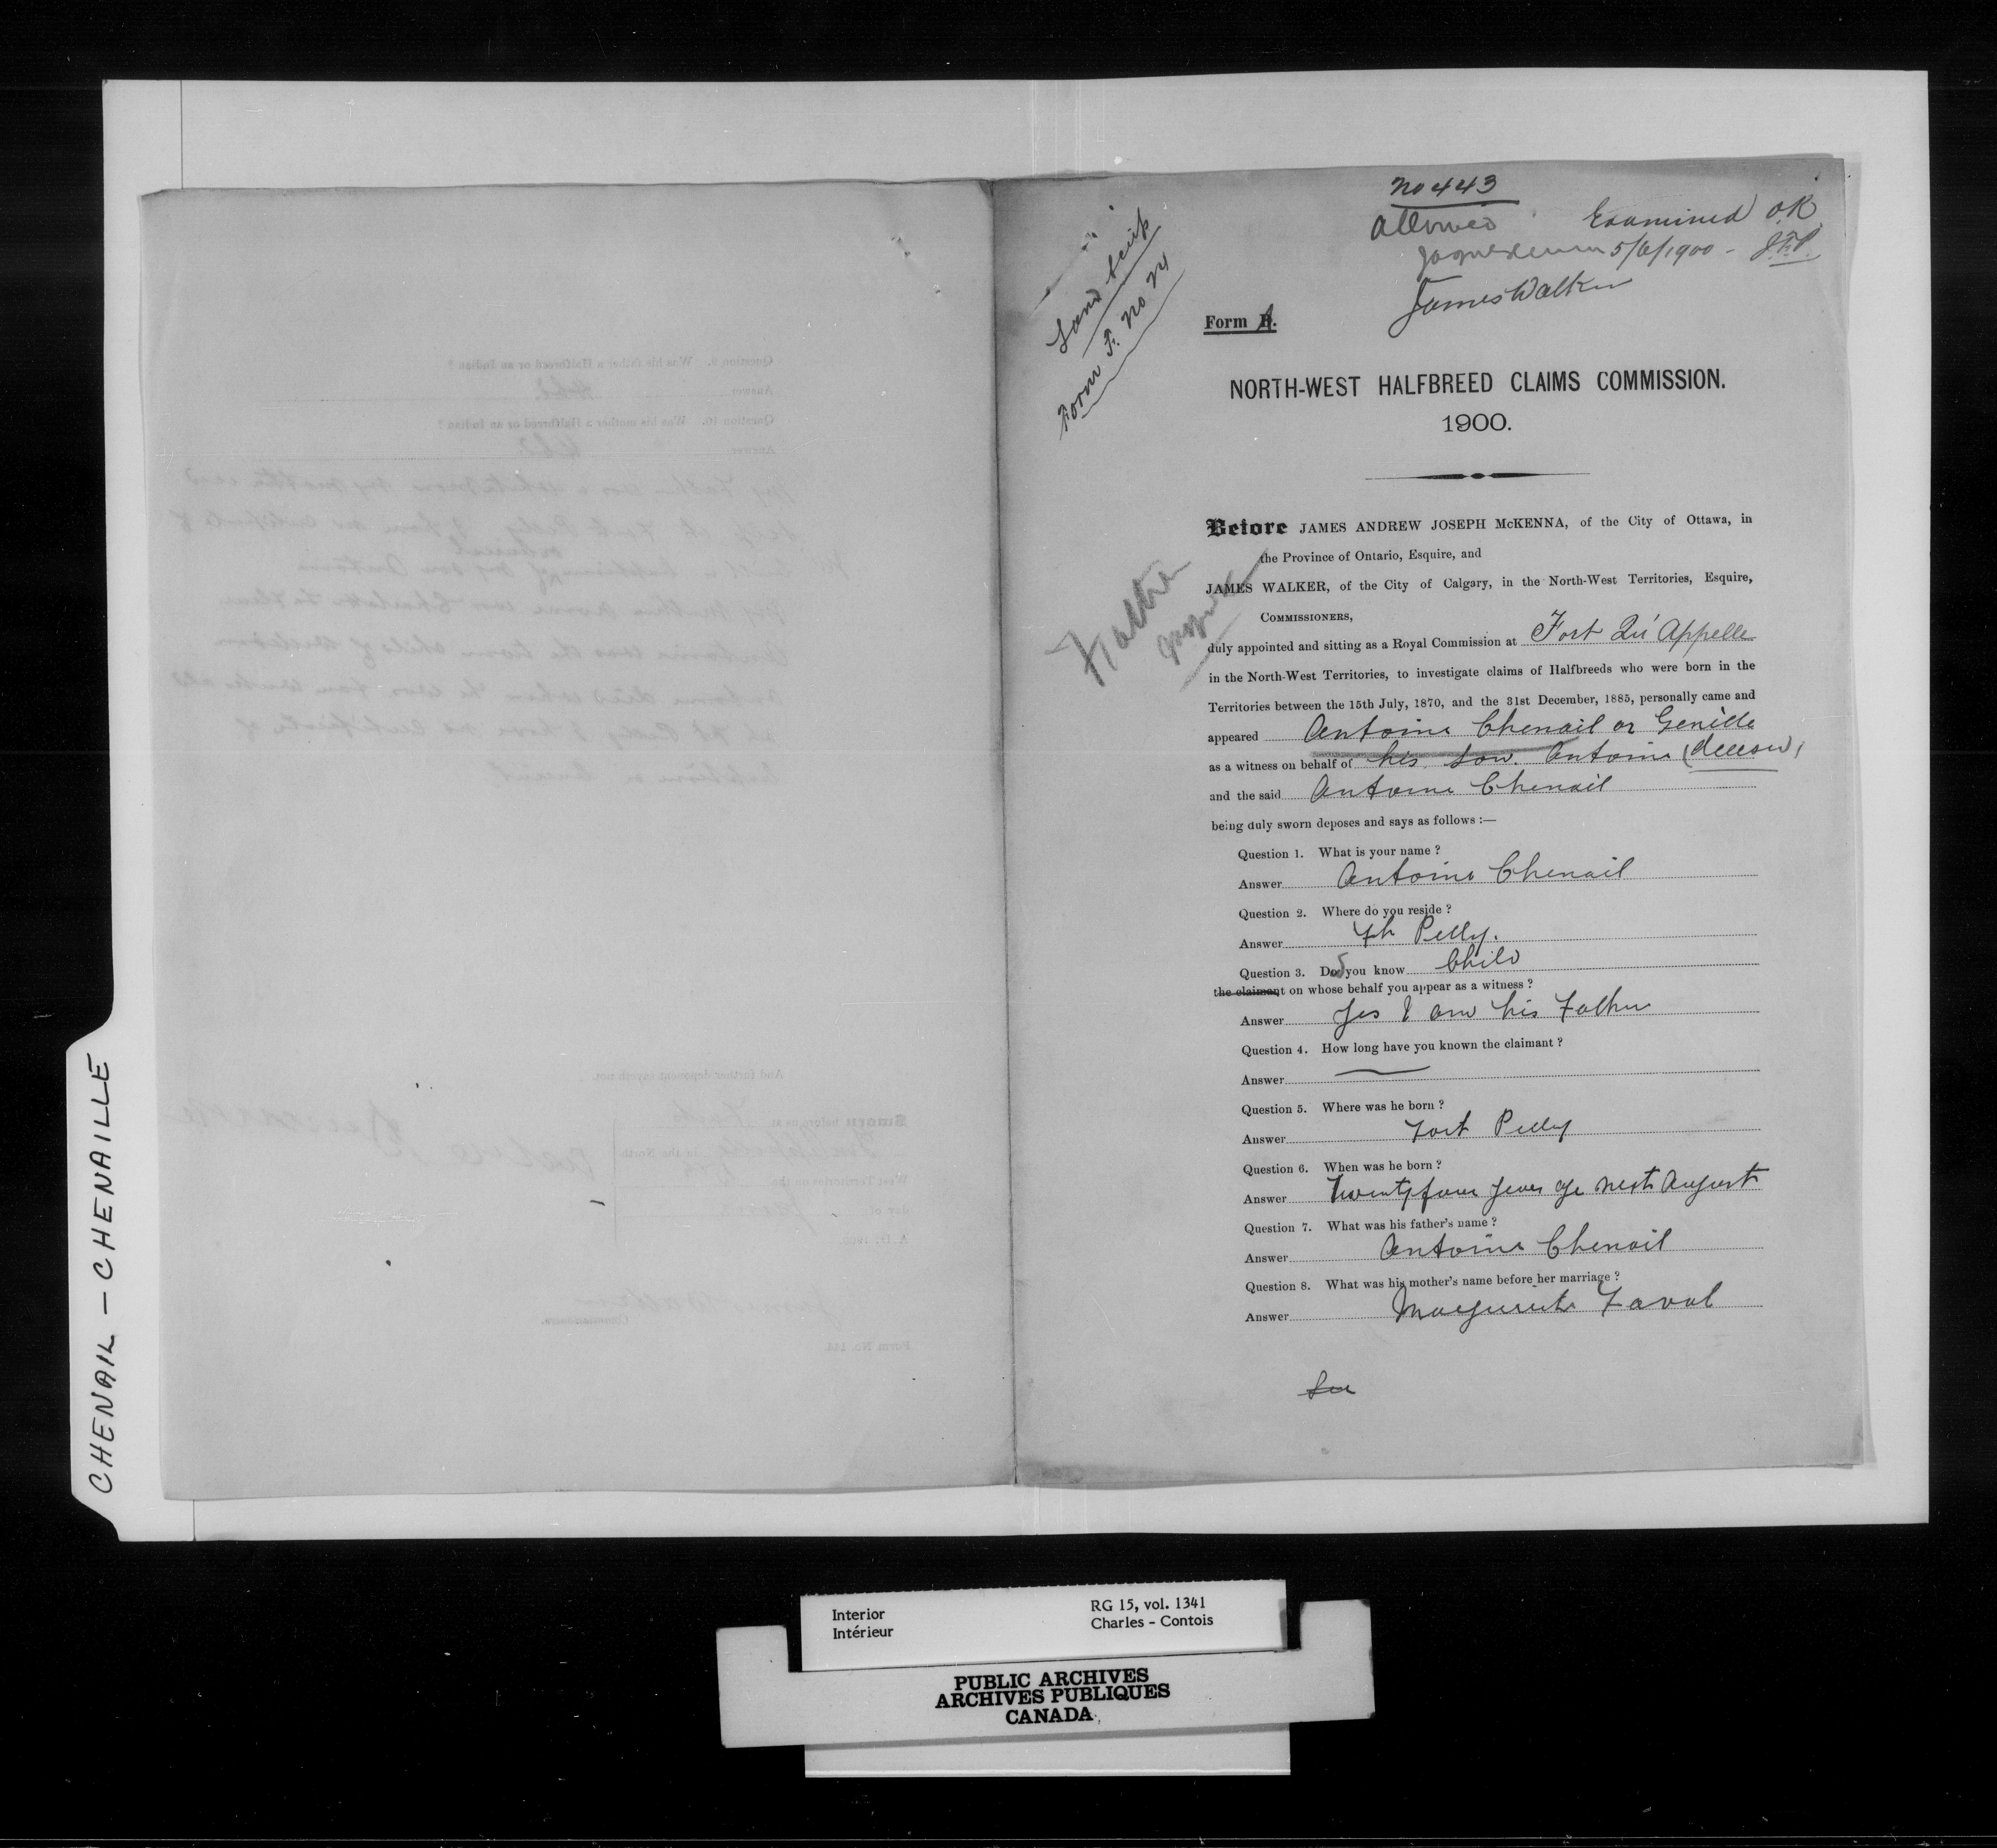 No 443
Allowed
Examined OK
5/6/1900 - J.F.P.
James Walker
Land Scrip
Form F. No 21
Form A.
NORTH-WEST HALFBREED CLAIMS COMMISSION.
1900.
Before JAMES ANDREW JOSEPH McKENNA, of the City of Ottawa, in
the Province of Ontario, Esquire, and
JAMES WALKER, of the City of Calgary, in the North-West Territories, Esquire,
COMMISSIONERS,
Father
duly appointed and sitting as a Royal Commission at Fort Qu'Appelle
in the North-West Territories, to investigate claims of Halfbreeds who were born in the
Territories between the 15th July, 1870, and the 31st December, 1885, personally came and
appeared Antoine Chenail or Genille
as a witness on behalf of his son Antoine (deceased)
and the said Antoine Chenail
being duly sworn deposes and says as follows :—
Question 1. What is your name ?
Answer Antoine Chenail
Question 2. Where do you reside ?
Answer Ft Pelly.
Question 3. Do you know Child
the claimant on whose behalf you appear as a witness ?
Answer Yes I am his Father
Question 4. How long have you known the claimant ?
Answer
Question 5. Where was he born ?
Answer Fort Pelly
Question 6. When was he born ?
Answer Twenty four years ago next August
Question 7. What was his father's name ?
Answer Antoine Chenail
Question 8. What was his mother's name before her marriage ?
Answer Marguerite Faval
CHENAIL – CHENAILLE
Interior
Intérieur
RG 15, vol. 1341
Charles - Contois
PUBLIC ARCHIVES
ARCHIVES PUBLIQUES
CANADA